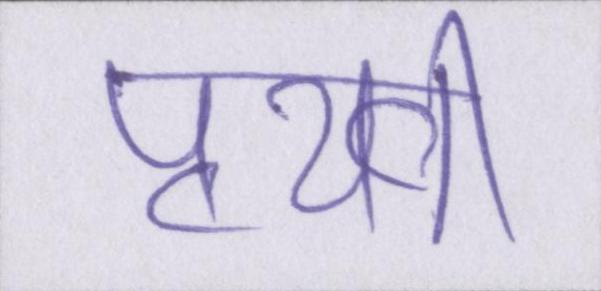 पृथ्वी